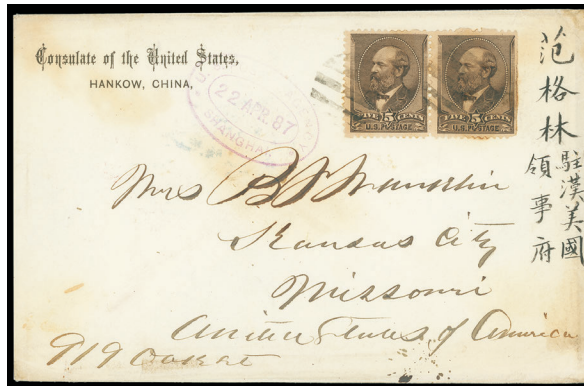 Consulate of the United States,
HANKOW, CHINA,
22 APR. 87
SHANGHAI
FIVE 5 CENTS
U.S. POSTAGE
FIVE 5 CENTS
U.S. POSTAGE
范格林
駐漢美國
領事府
Mrs B. S. Franklin
Kansas City
Missouri
United States of America
919 Oak st